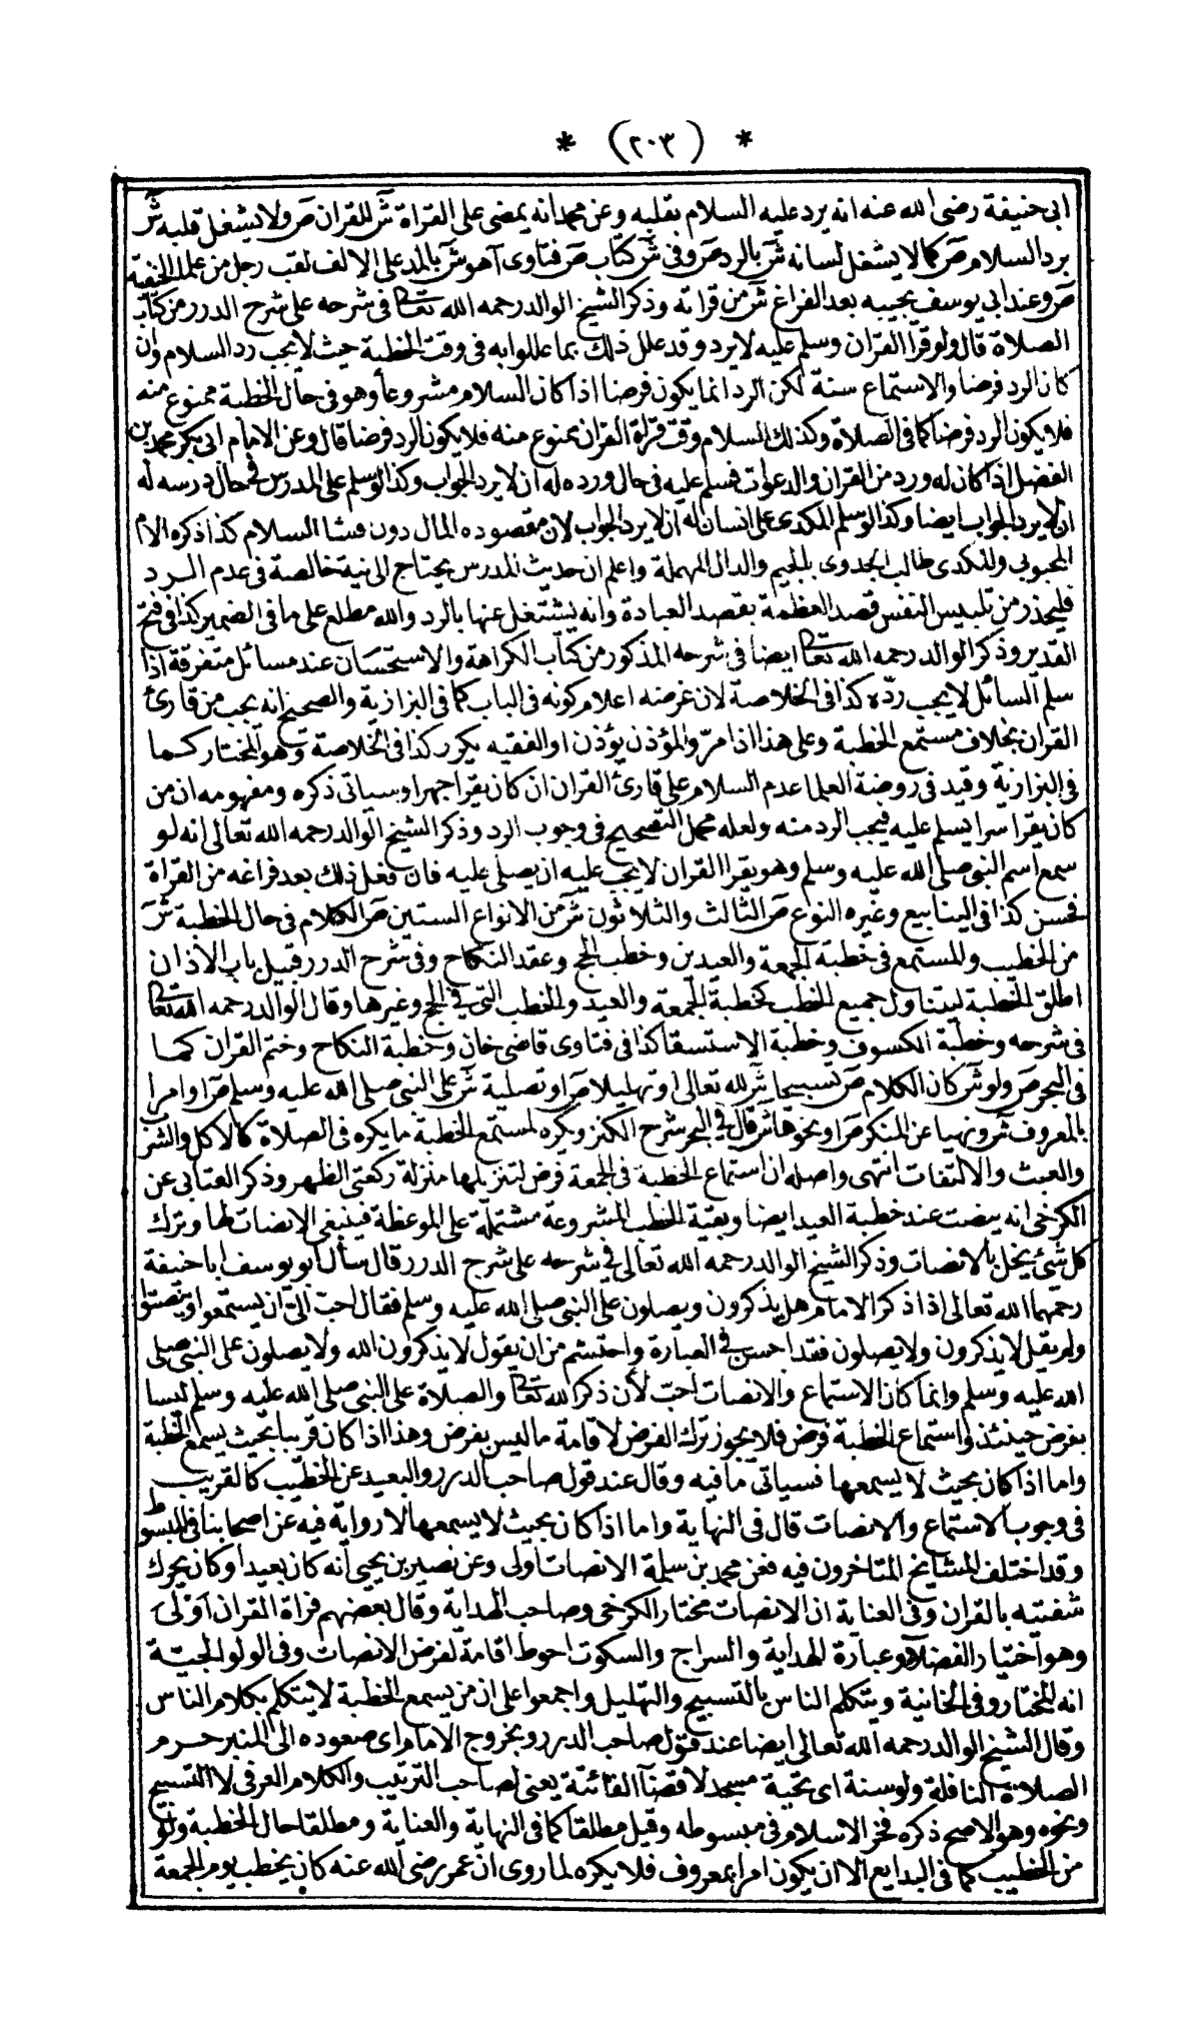 * (٢٠٣) *
ابى حنيفة رضى الله عنه انه يرد عليه السلام بقلبه وعن محمد انه يمضى على القراة ش للقران ص ولا يشغل قلبه ش
برد السلام ص كما لا يشغل لسانه ش بالرد ص وفى ش كتاب ص فتاوى آهو ش بالمد على الالف لقب رجل من علماء الحنفية
ص وعند ابى يوسف يجيبه بعد الفراغ ش من قراته وذكر الشيخ الوالد رحمه الله تعالى فى شرحه على شرح الدرر من كتاب
الصلاة قال ولو قرأ القران وسلم عليه لا يرد وقد علل ذلك بما عللوا به فى وقت الخطبة حيث لا يجب رد السلام وان
كان الرد فرضا والاستماع سنة لكن الرد انما يكون فرضا اذا كان السلام مشروعا وهو فى حال الخطبة ممنوع منه
فلا يكون الرد فرضا كما فى الصلاة وكذلك السلام وقت قراة القران ممنوع منه فلا يكون الرد فرضا قال وعن الامام ابى بكر محمد بن
الفضل اذا كان له ورد من القران والدعوات فسلم عليه فى حال ورده له ان لا يرد الجواب وكذا لو سلم على المدرس فى حال درسه له
ان لا يرد الجواب ايضا وكذا لو سلم المكدى على انسان له ان لا يرد الجواب لان مقصوده المال دون فشا السلام كذا ذكره الامام
المحبوبى والمكدى طالب الجدوى بالجيم والدال المهملة واعلم ان حديث المدرس يحتاج الى نية خالصة فى عدم الرد
فليحذر من تلبيس النفس قصد العظمة بقصد العبادة وانه يشتغل عنها بالرد والله مطلع على ما فى الضمير كذا فى فتح
القدير وذكر الوالد رحمه الله تعالى ايضا فى شرحه المذكور من كتاب الكراهة والاستحسان عند مسائل متفرقة اذا
سلم السائل لا يجب رده كذا فى الخلاصة لان غرضه اعلام كونه فى الباب كما فى البزازية والصحيح انه يجب من قارئ
القران بخلاف مستمع الخطبة وعلى هذا اذا مر والمؤذن يؤذن او الفقيه يكرر كذا فى الخلاصة وهو المختار كما
فى البزازية وقيد فى روضة العلما عدم السلام على قارئ القران ان كان يقرا جهرا وسياتى ذكره ومفهومه ان من
كان يقرا سرا يسلم عليه فيجب الرد منه ولعله محمل التصحيح فى وجوب الرد وذكر الشيخ الوالد رحمه الله تعالى انه لو
سمع اسم النبى صلى الله عليه وسلم وهو يقرا القران لا يجب عليه ان يصلى عليه فان فعل ذلك بعد فراغه من القراة
فحسن كذا فى الينابيع وغيره النوع ص الثالث والثلاثون ش من الانواع الستين ص الكلام فى حال الخطبة ش
من الخطيب والمستمع فى خطبة الجمعة والعيدين وخطب الحج وعقد النكاح وفى شرح الدرر قبيل باب الاذان
اطلق الخطبة ليتناول جميع الخطب كخطبة الجمعة والعيد والخطب التى فى الحج وغيرها وقال الوالد رحمه الله تعالى
فى شرحه وخطبة الكسوف وخطبة الاستسقا كذا فى فتاوى قاضى خان وخطبة النكاح وختم القران كما
فى البحر ص ولو ش كان الكلام ص تسبيحا ش لله تعالى او تهليلا ص او تصلية ش على النبى صلى الله عليه وسلم ص او امرا
بالمعروف ش ونهيا عن المنكر ص او نحوها ش قال فى البحر شرح الكنز ويكره لمستمع الخطبة ما يكره فى الصلاة كالاكل والشرب
والعبث والالتفات انتهى واصله ان استماع الخطبة فى الجمعة فرض لتنزيلها منزلة ركعتى الظهر وذكر العتابى عن
الكرخى انه ينصت عند خطبة العيد ايضا وبقية الخطب المشروعة مشتملة على الموعظة فينبغى الانصات لها وترك
كل شئ يخل بالانصات وذكر الشيخ الوالد رحمه الله تعالى فى شرحه على شرح الدرر قال سأل ابو يوسف ابا حنيفة
رحمهما الله تعالى اذا ذكر الامام هل يذكرون ويصلون على النبى صلى الله عليه وسلم فقال احب الى ان يستمعوا وينصتوا
ولم يقل لا يذكرون ولا يصلون فقد احسن فى العبارة واحتشم من ان يقول لا يذكرون الله ولا يصلون على النبى صلى
الله عليه وسلم وانما كان الاستماع والانصات احب لأن ذكر الله تعالى والصلاة على النبى صلى الله عليه وسلم ليسا
بفرض حينئذ واستماع الخطبة فرض فلا يجوز ترك الفرض لاقامة ما ليس بفرض وهذا اذا كان قريبا بحيث يسمع الخطبة
واما اذا كان بحيث لا يسمعها فسياتى ما فيه وقال عند قول صاحب الدرر والبعيد عن الخطيب كالقريب
فى وجوب الاستماع والانصات قال فى النهاية واما اذا كان بحيث لا يسمعها لا رواية فيه عن اصحابنا فى المبسوط
وقد اختلف المشايخ المتاخرون فيه فعن محمد بن سلمة الانصات اولى وعن نصير بن يحيى انه كان بعيدا وكان يحرك
شفتيه بالقران وفى العناية ان الانصات مختار الكرخى وصاحب الهداية وقال بعضهم قراة القران اولى
وهو اختيار الفضلى وعبارة الهداية والسراج والسكوت احوط اقامة لفرض الانصات وفى الولوالجية
انه المختار وفى الخانية ويتكلم الناس بالتسبيح والتهليل واجمعوا على ان من يسمع الخطبة لا يتكلم بكلام الناس
وقال الشيخ الوالد رحمه الله تعالى ايضا عند قول صاحب الدرر وبخروج الامام اى صعوده الى المنبر حرم
الصلاة النافلة ولو سنة اى تحية مسجد لا قضآ الفائتة يعنى لصاحب الترتيب والكلام العرفى لا التسبيح
ونحوه وهو الاصح ذكره فخر الاسلام فى مبسوطه وقيل مطلقا كما فى النهاية والعناية ومطلقا حال الخطبة ولو
من الخطيب كما فى البدايع الا ان يكون امرا بمعروف فلا يكره لما روى ان عمر رضى الله عنه كان يخطب يوم الجمعة